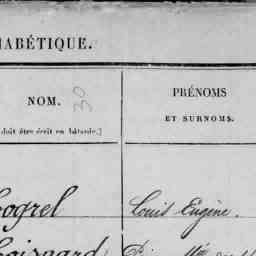 HABÉTIQUE.
NOM.
30
doit être écrit en bâtarde.]
PRÉNOMS
ET SURNOMS.
Cogrel
Louis Eugène.